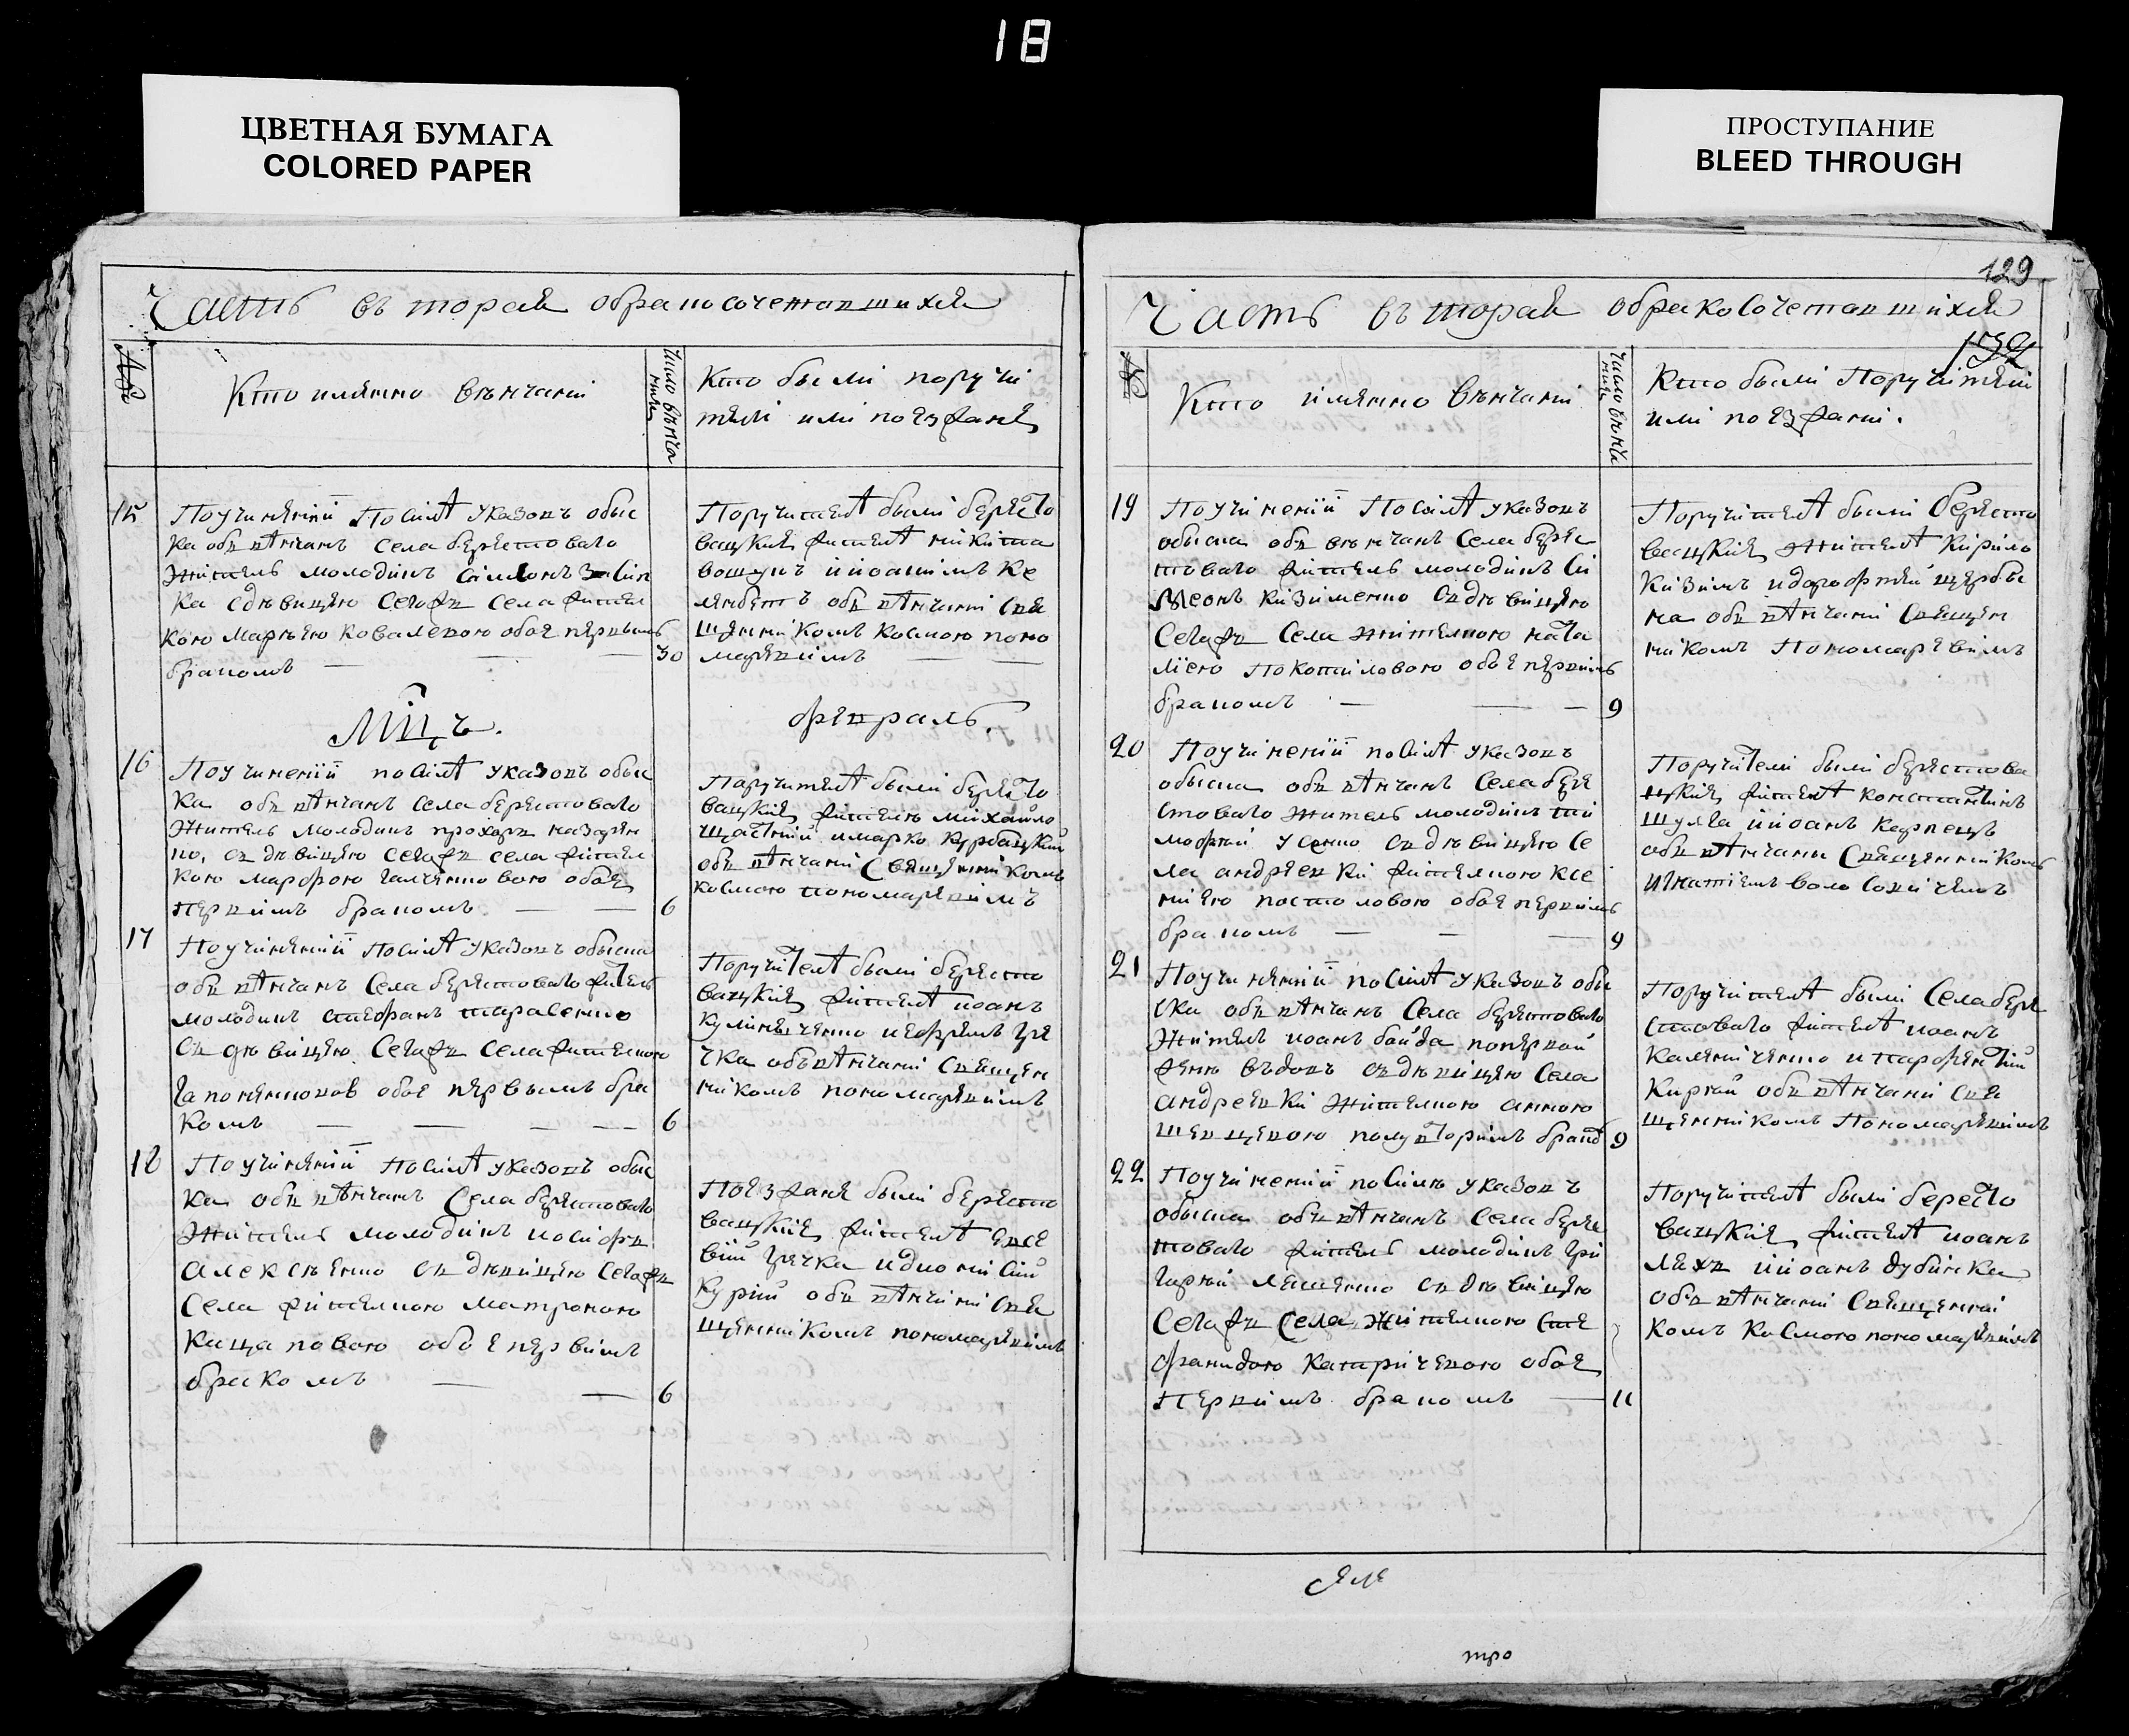 18
ЦВЕТНАЯ БУМАГА
COLORED PAPER
ПРОСТУПАНИЕ
BLEED THROUGH
Часть вторая обракосочетавшихся
№
Кто имянно венчани
Число венча
ния
Кто были поручи
тели или поезжане
15
Поучинянии посилѣ указовъ обыс
ка обвѣнчанъ села берестоваго
житель молодикъ
ка сдѣвицею сегожъ села жител
кою Марѣею Ковалевою обое первымъ
бракомъ
30
Поручителѣ были бересто
вацкие жителѣ никита
вовшунъ ииоакимъ ке
обвѣнчани свя
щенникомъ космою поно
маревимъ
Мцъ.
февраль.
16
Поучинении посилѣ указовъ обыс
ка обвѣнчанъ села берестоваго
житель молодикъ прохоръ назарен
ко, съ дѣвицею сегожъ села жител
кою марфою обое
первимъ бракомъ
6
Поручителѣ были бересто
вацкие жители михайло
щастний имарко курбацкий
обвѣнчани священникомъ
космою пономаревимъ
17
Поучинянии посилѣ указовъ обыска
обвѣнчанъ села берестоваго житель
молодикъ стефанъ тарасенко
съ дѣвицею сегожъ села жителкою
гапоненковою обое первымъ бра
комъ
6
Поручителѣ были бересто
вацкие жителѣ иоанъ
кулиниченко иефремъ гре
чка обвѣнчани священ
никомъ пономаревимъ
18
Поучинянии посилѣ указовъ обыс
ка обвѣнчанъ села берестоваго
житель молодикъ иосифъ
алексѣенко съ дѣвицею сегожъ
села жителкою матроною
кацаповою обое первимъ
бракомъ
6
Поезжане были бересто
вацкие жителѣ евсе
вий гречка идионисий
курий обвѣнчани свя
щенникомъ пономаревимъ
129
Часть вторая обракосочетавшихся
№
Кто имянно вѣнчани
Число вѣнча
ния
Кто были поручители
или поезжани.
19
Поучинении посилѣ указовъ
обыска обвѣнчанъ села берес
товаго житель молодикъ си
меонъ кизименко съ дѣвицею
сегожъ села жителкою ната
лiею покотиловою обое первимъ
бракомъ
9
Поручителѣ были Берєсто
вацкие жителѣ кирило
кизимъ идорофтей щерби
на обвѣнчани священ
никомъ Пономаревимъ
20
Поучинении посилѣ указовъ
обыска обвѣнчанъ села бере
стоваго житель молодикъ ти
мофтий усенко съ дѣвицею се
ла андреевки жителкою ксе
ниею постоловою обое первимъ
бракомъ
9
Поручители были берестова
цкие жителѣ константинъ
шулга ииоанъ карпець
обвѣнчаны священникомъ
игнатiемъ волосовичемъ
21
Поучинянии посилѣ указовъ обы
ска обвѣнчанъ села берестоваго
житель иоанъ байда попервой
жене вдовъ съ дѣвицею села
андреевки жителкою анною
шевцевою полувторимъ бракомъ
9
Поручителѣ были села бере
стоваго жителѣ иоанъ
калениченко ипарфентий
кирпай обвѣнчани свя
щенникомъ Пономаревимъ
22
Поучинении посилѣ указовъ
обыска обвѣнчанъ села бере
стоваго житель молодикъ гри
горий ляшенко съ дѣвицею
сегожъ села жителкою сте
фанидою катричевою обое
первимъ бракомъ
11
Поручителѣ были бересто
вацкие жителѣ иоанъ
ляхъ ииоанъ дубинка
обвѣнчани священни
комъ космою пономаревимъ
тро